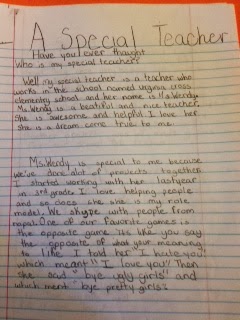 A Special Teacher
Have you ever thought
Who is my special teacher?
Well my special teacher is a teacher who
works in the school named virginia cross
elementry school and her name is Ms.Wendy.
Ms.Wendy is a beatiful and nice teacher.
She is awesome and helpful. I love her
she is a dream come true to me.
Ms.Wendy is special to me because
we've done alot of projects together
I started working with her last year
in 3rd grade. I love helping people
and so does she. she is my role
model. We skype with people from
nepal. One of our favorite games is
the opposite game. Its like you say
the opposite of what your meaning
to like I told her "I hate you"
which meant "I love you". Then
she said "bye ugly girls" and
which ment "bye pretty girls.